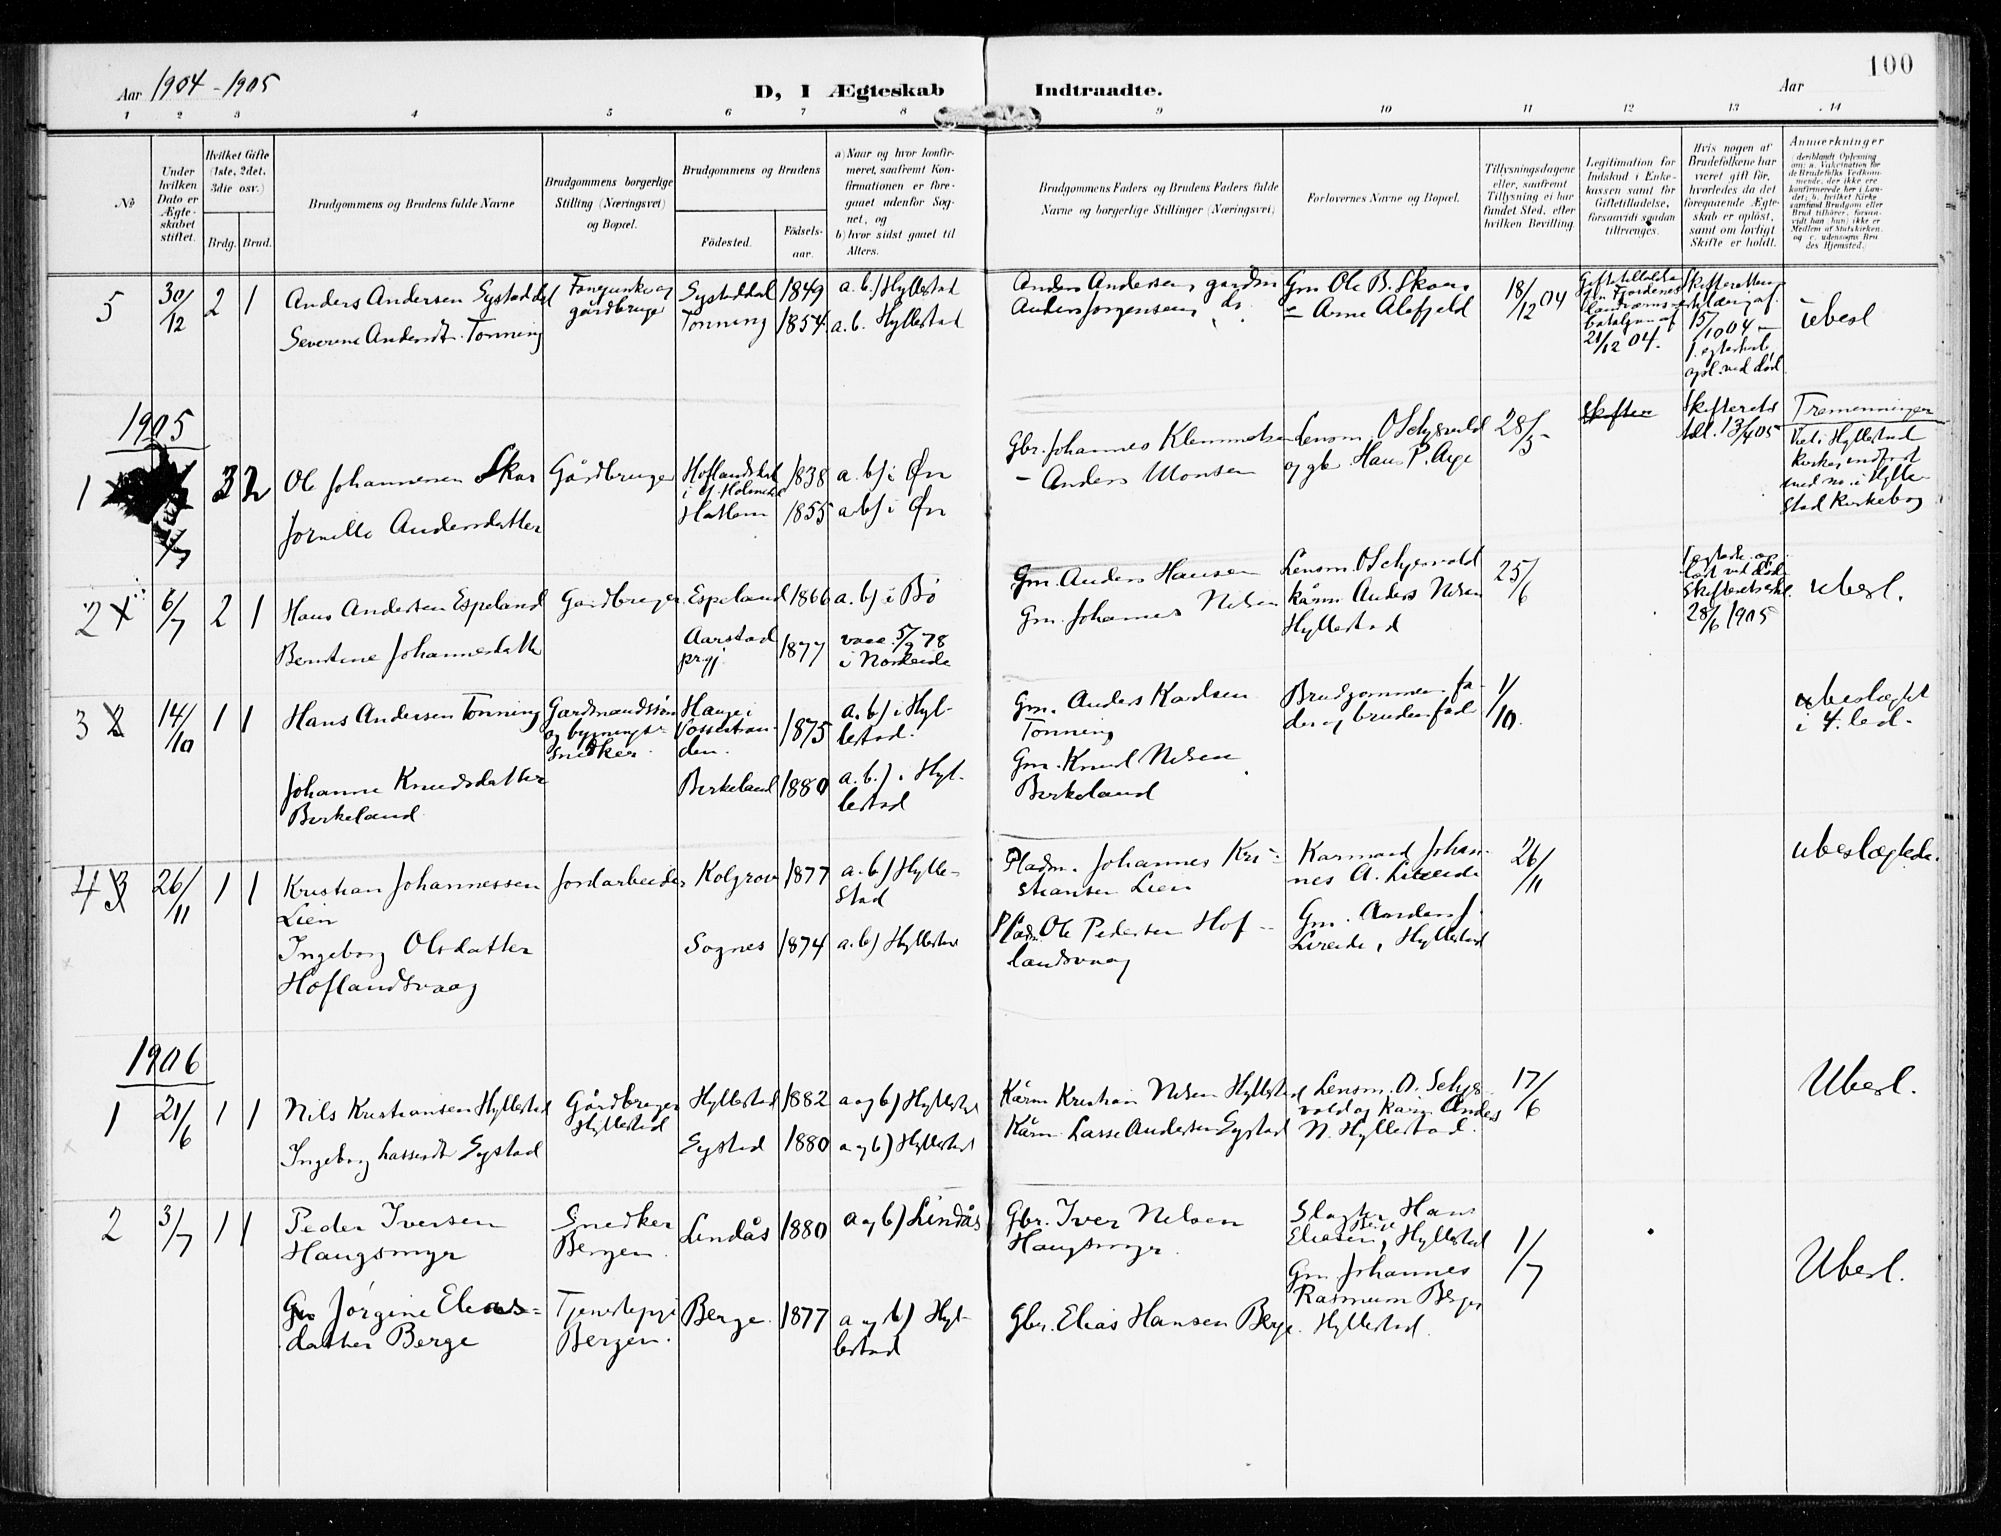 100
Aar 1904-1905
D, I Ægteskab Indtraadte.
Aar
1 2 3 4 5 6 7 8 9 10 11 12 13 14
№
Under hvilken Dato er Ægteskabet stiftet.
Hvilket Gifte (1ste, 2det, 3die osv.)
Brdg. Brud.
Brudgommens og Brudens fulde Navne
Brudgommens borgerlige Stilling (Næringsvei) og Bopæl.
Brudgommens og Brudens
Fødested.
Fødselsaar.
a) Naar og hvor konfirmeret, saafremt Konfirmationen er foregaaet udenfor Sognet, og
b) hvor sidst gaaet til Alters.
Brudgommens Faders og Brudens Faders fulde Navne og borgerlige Stillinger (Næringsvei)
Forlovernes Navne og Bopæl.
Tillysningsdagene eller, saafremt Tillysning ei har fundet Sted, efter hvilken Bevilling.
Legitimation for Indskud i Enkekassen samt for Giftetilladelse, forsaavidt saadan tiltrænges.
Hvis nogen af Brudefolkene har været gift før, hvorledes da det foregaaende Ægteskab er opløst, samt om lovligt Skifte er holdt.
Anmerkninger
5 30/12 2 1
Anders Andersen Systaddal
Severine Andersdt. Tonning
gårdbruger
Systaddal 1849 a. b.) Hyllestad
Tonning 1854 a. b. Hyllestad
Anders Andersen, gardm
Anders Jorgensen, do.
Gm Ole B. Skaar
– Arne Alefjeld
18/12 04
21/12 04.
Skifteretten
15/10 04 –
opl. ved død
ubesl
1905
1 3 2
Ole Johannesen Skar
Jornille Andersdatter
Gårdbruger
1838 a. b) i Øn
Hatlem 1855 a b) i Øn
Gbr. Johannes Klemmetsen
– Anders Monsen
Lensm. O Schysvold
og gb. Hans P. Aye
28/5
Skifterets
1905
Tremenninger
Viet i Hyllestad
kirke, indført
med no. i Hyllestad
Kirkebog
2 6/7 2 1
Hans Andersen Espeland
Berntine Johannesdatter
Gardbruger
Espeland 1866 a. b) i Bø
Aarstad
prgj. 1877 vacc. 5/9 78
i Nordeide
Gm. Anders Hansen
Gm. Johannes Nilsen
Lensm. O Schysvold
kårm Anders Nilsen
Hyllestad
25/6
løst ved død
28/6 1905
ubesl.
3 14/10 1 1
Hans Andersen Tonning
Johanne Knudsdatter
Birkeland
Gardmandssøn
og bygnings-
snedker
Hauge i
Vossestran-
den. 1875 a. b) i Hyl-
lestad.
Birkeland 1880 a. b.) i Hyl-
lestad
Gm. Anders Karlsen
Tonning
Gm. Knud Nilsen
Birkeland
Brudgommen fa-
der og brudens fad
1/10.
ubeslægtet
i 4. led.
4 26/11 1 1
Kristian Johannessen
Lien
Ingeborg Olsdatter
Hoflandsvaag
Jordarbeider
Kolgrov 1877 a. b) Hylle-
stad
Sognes 1874 a. b) Hyllestad
Pladm. Johannes Kri-
stiansen Lien
Pladm Ole Pedersen Hof-
landsvaag
Karmand Johan-
nes A. Lireide
Gm. Anders J.
Lireide, Hyllestad
26/11
ubeslægtede.
1906
1 21/6 1 1
Nils Kristiansen Hyllestad
Ingeborg Lassesdt Systad
Gårdbruger
Hyllestad
Hyllestad 1882 a og b) Hyllestad
Systad 1880 a og b) Hyllestad
Kårm Kristian Nilsen Hyllestad
Kårm Lasse Andersen Systad
Lensm. O. Schys-
vold og kårm Anders
N. Hyllestad.
17/6
Ubesl.
2 3/7 1 1
Peder Iversen
Haugsmyr
Jørgine Elias-
datter Berge
Snedker
Bergen.
Tjenestepige
Bergen.
Lindås 1880 a og b) Lindås
Berge. 1877 a og b) Hyl-
lestad
Gbr. Iver Nilsen
Haugsmyr.
Gbr. Elias Hansen Berge.
Slagter Hans
Eliasen Berge, Hyllestad
Gm Johannes
Rasmusen Berge
Hyllestad.
1/7
Ubesl.